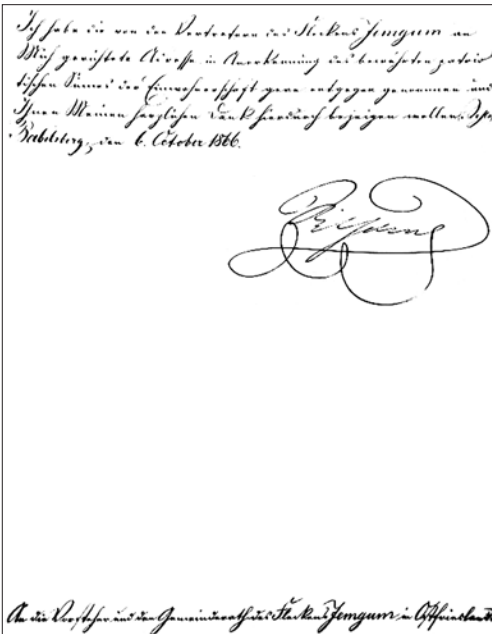 Ich habe die von den Vertretern des Fleckens Jemgum an
Mich gerichtete Adresse in Anerkennung des bewährten patrio-
tischen Sinnes der Einwohnerschaft gern entgegen genommen und
Ihnen Meinen herzlichen Dank hierdurch bezeigen wollen. Schloß
Babelsberg, den 6. October 1866.
Wilhelm
An die Vorsteher und den Gemeinderath des Fleckens Jemgum in Ostfriesland